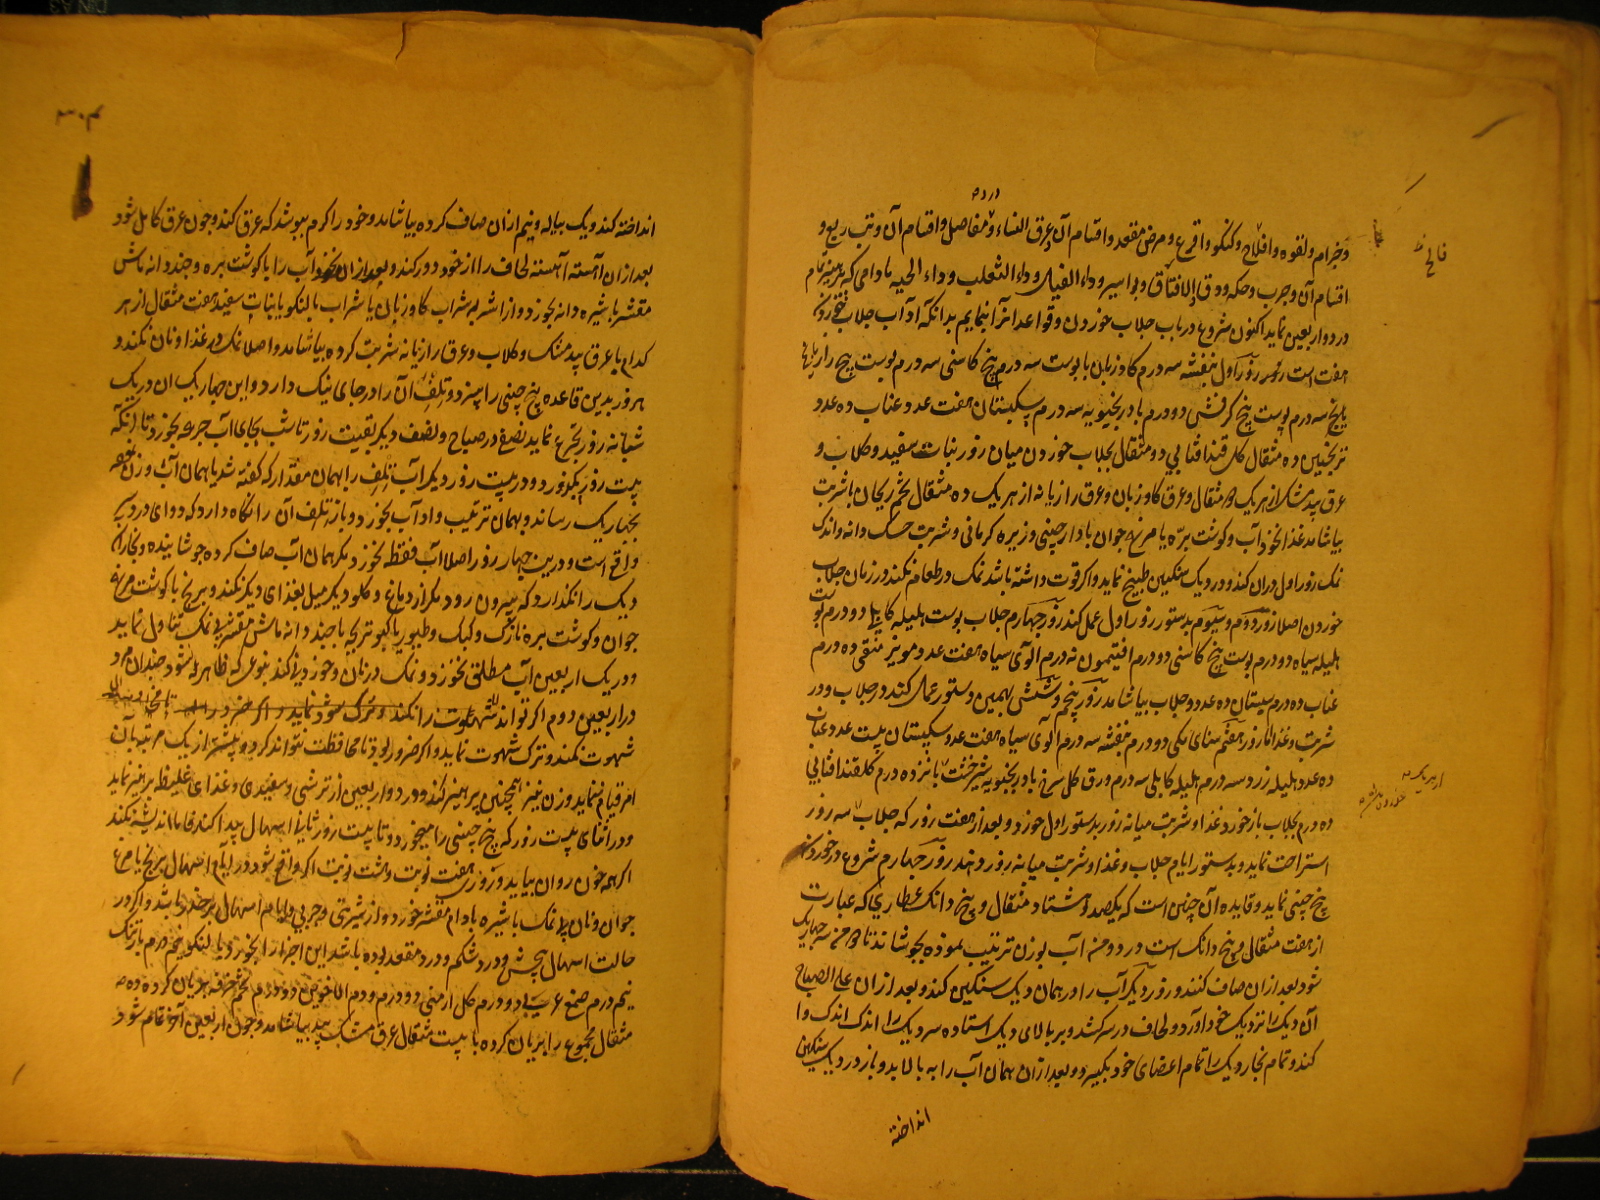 درد
وجزام ولقوه وافلاج وکنکو واقرع ومرض مقعد واقسام آن وعرق النساء ومفاصل واقسام آن وتب ربع و
فالج
اقسام آن وجرب وحکه ودق والافتاق وبواسیر وداء الفیل وداء الثعلب وداء الحیه یا دامی که پرهیز تمام
در دو اربعین نماید اکنون شروع در باب جلاب خوردن وقواعد آنرا بنمایم بدانکه آداب جلاب
هفت است روز اول بنفشه سه درم کاوزبان با پوست سه درم بیخ کاسنی سه درم پوست بیخ رازیانج
سه درم پوست بیخ کرفس دو درم بادرنجبویه سه درم سپستان هفت عدد عناب ده عدد
ترنجبین ده مثقال کل قند افتابی دو مثقال بجلاب خوردن میان روز نبات سفید وکلاب و
عرق بیدمشک از هر یک مثقال وعرق کاوزبان وعرق رازیانه از هر یک ده مثقال تخم ریحان با شربت
بیاشامد غذا نخوداب وکوشت بره یا مرغ جوان با دارچینی وزیره کرمانی وشربت خسک دانه واندک
نمک روز اول در آن کند ودر دیک سنکین طبخ نماید واکر قوت داشته باشد نمک در طعام نکند در زمان جلاب
خوردن اصلا روز دوم وسیوم بدستور روز اول عمل کند روز چهارم جلاب پوست هلیله کابلی دو درم پوست
هلیله سیاه دو درم پوست بیخ کاسنی دو درم افتیمون نه درم آلوی سیاه هفت عدد مویز منقی ده درم
عناب ده درم سپستان ده عدد جلاب بیاشامد روز پنجم وششم بهمین دستور عمل کند در جلاب ودر
شربت وغذا اما روز هفتم سنای مکی دو درم بنفشه سه درم آلوی سیاه هفت عدد سپستان بیست عدد عناب
ده عدد هلیله زرد سه درم هلیله کابلی سه درم ورق کل سرخ بادرنجبویه شیرخشت پانزده درم کلقند افتابی
از هر یک
ده درم بجلاب باز خورد غذا وشربت میانه روز بدستور اول خورد وبعد از هفت روز که جلاب سه روز
استراحت نماید وبدستور ایام جلاب وغذا وشربت میانه روز دهند روز چهارم شروع در خوردن
بیخ چینی نماید وقاعده آن چنین است که یکصد وهشتاد مثقال وپنج دانک عطاری که عبارت
از هفت مثقال وپنج دانک است در دو من آب بوزن ترتیب نموده بجوشاند تا
شود بعد از آن صاف کنند وروز دیکر آب را در همان دیک سنکین کند وبعد از آن علی الصباح
آن دیک را نزدیک خود آورد ولحاف در سر کشد وبر بالای دیک استاده سر دیک را اندک اندک وا
کند وتمام بخار دیک را تمام اعضای خود بکیرد وبعد از آن همان آب را به پالاید وباز در دیک سنکین
انداخته
۳۰۴
انداخته کند ویک پیاله ونیم از آن صاف کرده بیاشامد وخود را کرم بپوشد که عرق کند وچون عرق کامل شود
بعد از آن آهسته آهسته لحاف را از خود دور کند وبعد از آن نخود آب را با کوشت بره وچند دانه ماش
مقشر با شیره دانه بخورد واز اشربه شراب کاوزبان یا شراب بالنکو یا نبات سفید هفت مثقال از هر
کدام با عرق بیدمشک وکلاب وعرق رازیانه شربت کرده بیاشامد واصلا نمک در غذا ونان نکند و
هر روز بدین قاعده بیخ چینی را بپزد وتلف آن را در جای نیک دارد واین چهار یک آن در یک
شبانه روز تجرع نماید نصفی در صباح ونصف دیکر بقیت روز تا شب بجای آب جرعه بخورد تا آنکه
بیست روز بکذرد ودر بیست روز دیکر آب تلف را بهمان مقدار که کفته شد با همان آب وزن نصفه
بچهار یک رساند وبهمان ترتیب وادآب بخورد وباز تلف آن را نکاه دارد که دوای درد
واقع است ودرین چهار روز اصلا آب فقط نخورد مکر همان آب صاف کرده جوشانیده وبخار آن
دیک را نکذارد که بیرون رود مکر از دماغ وکلو دیکر میل بغذای دیکر نکند وبرنج با کوشت مرغ
جوان وکوشت بره نازک وکبک وطیور یا کبوتر بچه با چند دانه ماش مقشر بی نمک تناول نماید
ودر یک اربعین آب مطلق نخورد ونمک در نان وخوردنی نکند بنوعی که ظاهر نشود چندان مرد
در اربعین دوم اکر تواند شهوت را نکند
شهوت نکند وترک شهوت نماید واکر ضرور بود تا محافظت نتواند کرد وبیشتر از یک مرتبه بآن
امر قیام ننماید وزن نیز همچنین پرهیز کند ودر دو اربعین از ترشی وسفیدی وغذای غلیظ پرهیز نماید
ودر اثنای بیست روز که بیخ چینی را میخورد وتا بیست روز ثانی اسهال پیدا کند فاما اندیشه نکند
اکر همه خون روان بیاید وروزی هفت نوبت وهشت نوبت اکر واقع شود در ایام اسهال برنج با مرغ
جوان ونان بی نمک با شیره بادام مقشر خورد واز شیرینی وچربی در ایام اسهال بر حذر باشد واکر در
حالت اسهال پیچش ودرد شکم ودرد مقعد بوده باشد این اجزا را بخورد بالنکو پنج درم بارتنک
نیم درم صمغ عربی دو درم کل ارمنی دو درم ودم الاخوین دو درم تخم خرفه بریان کرده ده
مثقال مجموع را بریان کرده با بیست مثقال عرق بیدمشک بیاشامد وچون اربعین آخر تمام شود